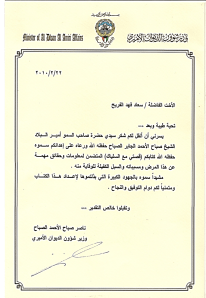 Minister of Al Diwan Al Amiri Affairs
٢٠١٠/٢/٢٢
الأخت الفاضلة / سعاد فهد الفريح
تحية طيبة وبعد ...
يسرني أن أنقل لكم شكر سيدي حضرة صاحب السمو أمير البلاد
الشيخ صباح الأحمد الجابر الصباح حفظه الله ورعاه على إهدائكم سموه
حفظه الله كتابكم المتضمن لمعلومات وحقائق مهمة
عن هذا المرض ومسبباته والسبل الكفيلة للوقاية منه .
مشيداً سموه بالجهود الكبيرة التي بذلتموها لإعداد هذا الكتاب
ومتمنياً لكم دوام التوفيق والنجاح .
وتقبلوا خالص التقدير ...
ناصر صباح الأحمد الصباح
وزير شؤون الديوان الأميري